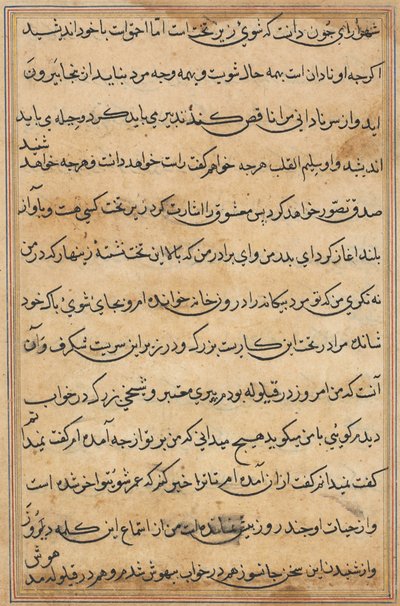 شهرآرای چون دانت که شوی زیر تخت است اما احمق است با خود اندیشید
اگرچه او نادان است بهمه حال شویت و بهمه وجه مرد بناید از نجا بیرون
اید و از سر نادانی مرا ناقص کند تدبیری باید کرد و حیله‌ی باید
اندیشید و او سلیم القلب هرچه خواهم گفت راست خواهد دانت و هرچه خواهد شنید
صدق تصور خواهد کرد پس معشوق را اشارت کرد زیر تخت کسی هست و باواز
بلند اغاز کرد ای پدر من و ای برادر من که بالا این تخت نشسته زینهار که در من
نه نکری من که تو مرد بیکانه را در روز خانه خوانده ام و بجای شوی پاک خود
شانده مرا در تحت این کار یست بزرک و در زیر این سریت شکرف و آن
آنت که من امروز در قیلوله بودم پیری معتبر و شیخی بزرک در خواب
دیدم کویئی با من میکوید هیچ میدانی که من بر تو از چه آمده ام گفتم نمیدانم
گفت نمیدانم گفت از آن آمده ام تا ترا خبر کنم که عمر شوی تو اخر شده است
و از حیات او چند روز بیش نمانده است من از استماع این کلمه دلروز
و از شنیدن این سخن جانسوز هم در خواب بیهوش شدم و هم در قیلوله مد هوش